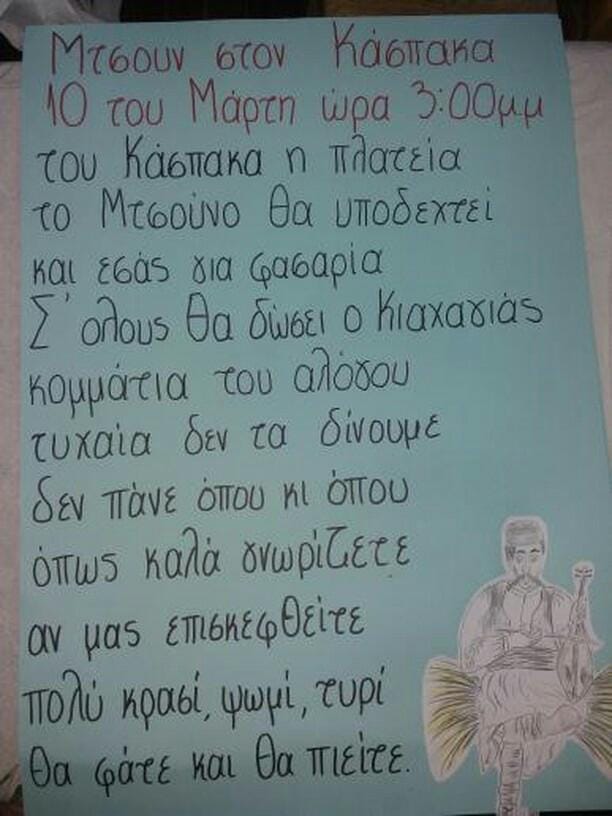 Μτσουν στον Κάσπακα
10 του Μάρτη ώρα 3:00μ.μ
του Κάσπακα η πλατεία
το Μτσούνο θα υποδεχτεί
και εσάς για φασαρία
Σ' ολους θα δώσει ο Κιαχαγιάς
κομμάτια του αλόγου
τυχαία δεν τα δίνουμε
δεν πάνε όπου κι όπου
όπως καλά γνωρίζετε
αν μας επισκεφθείτε
πολύ κρασί, ψωμί, τυρί
θα φάτε και θα πιείτε.